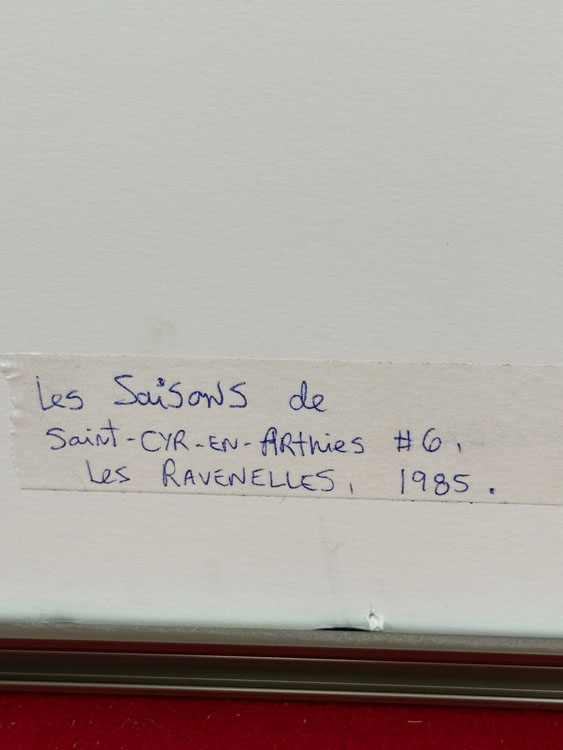 Les Saisons de
Saint-CYR-EN-ARthies #6.
Les RAVENELLES, 1985.